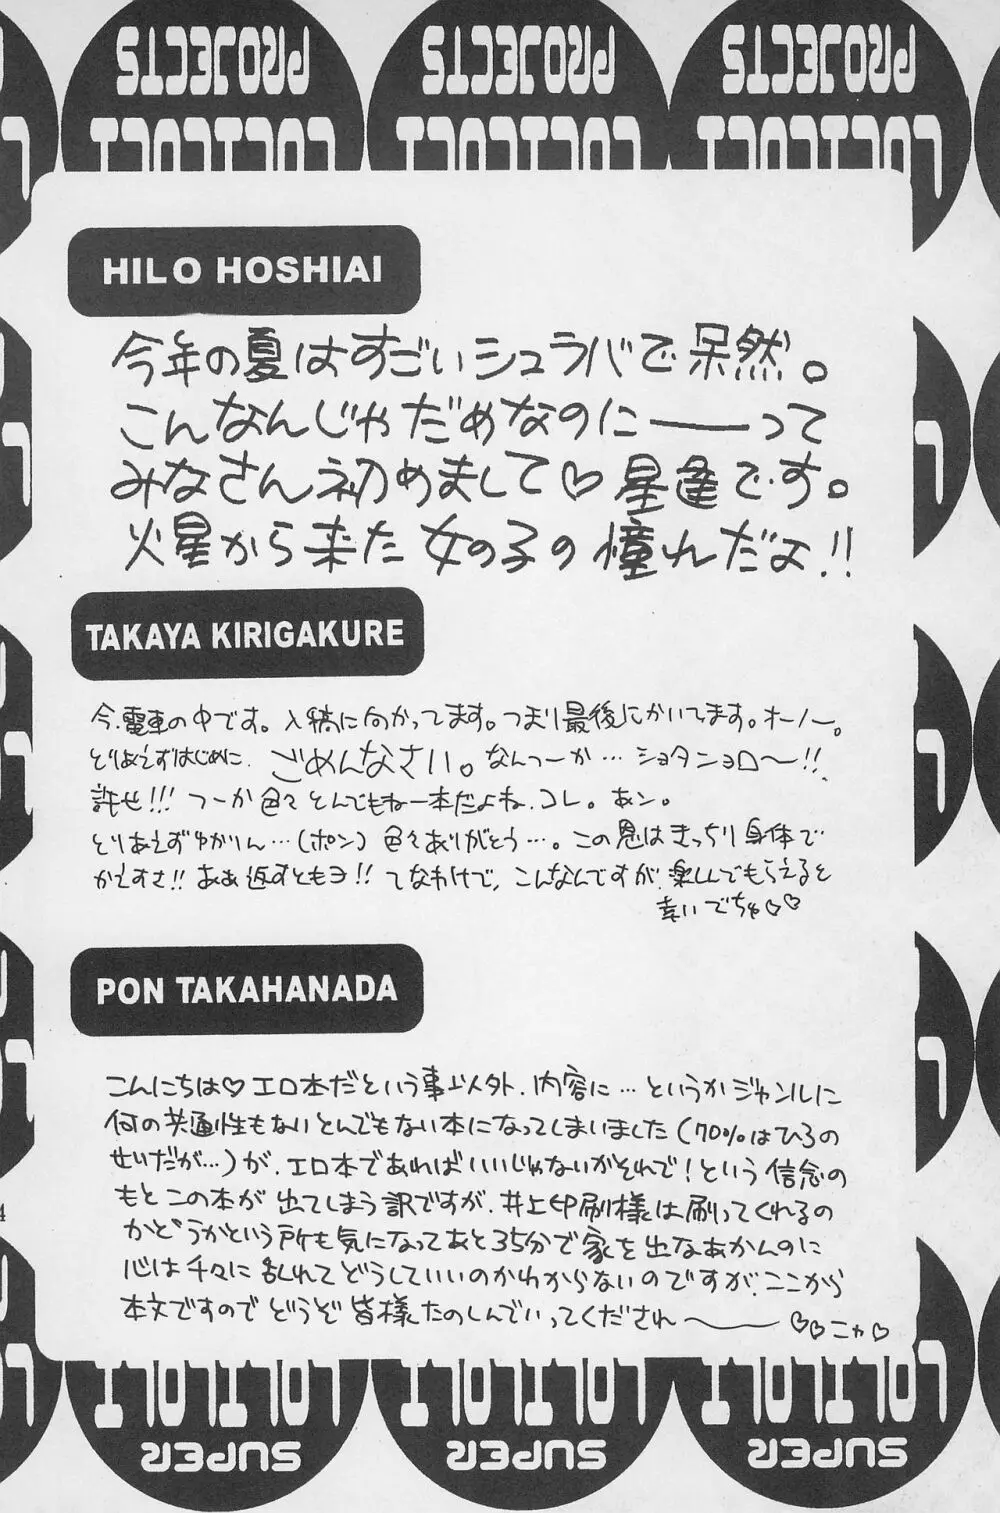 PROJECTS PROJECTS PROJECTS
LOLILOLI LOLILOLI LOLILOLI
HILO HOSHIAI
今年の夏はすごいシュラバで呆然。
こんなんじゃだめなのに――って
みなさん初めまして♡星逢です。
火星から来た女の子の憧れだよ!!
TAKAYA KIRIGAKURE
今、電車の中です。入稿に向かってます。つまり最後にかいてます。オーノー。
とりあえずはじめに、ごめんなさい。なんつーか…ショタンョロ〜!!
許せ!!! つーか色々とんでもねー本だよね、コレ。あン。
とりあえずゆかりん…(ポン)色々ありがとう…。この恩はきっちり身体で
かえすさ!! ああ返すともヨ!! てなわけで、こんなんですが、楽しんでもらえると
幸いでちゅ♡♡
PON TAKAHANADA
こんにちは♡エロ本だという事以外、内容に…というかジャンルに
何の共通性もないとんでもない本になってしまいました(70%はひろの
せいだが…)が、エロ本であればいいじゃないかそれで!という信念の
もとこの本が出てしまう訳ですが、井上印刷様は刷ってくれるの
かどうかという所も気になってあと35分で家を出なあかんのに
心は千々に乱れてどうしていいのかわからないのですが、ここから
本文ですのでどうぞ皆様たのしんでいってくだされ〜――♡♡ニャ♡
4
LOLILOLI LOLILOLI LOLILOLI
SUPER SUPER SUPER